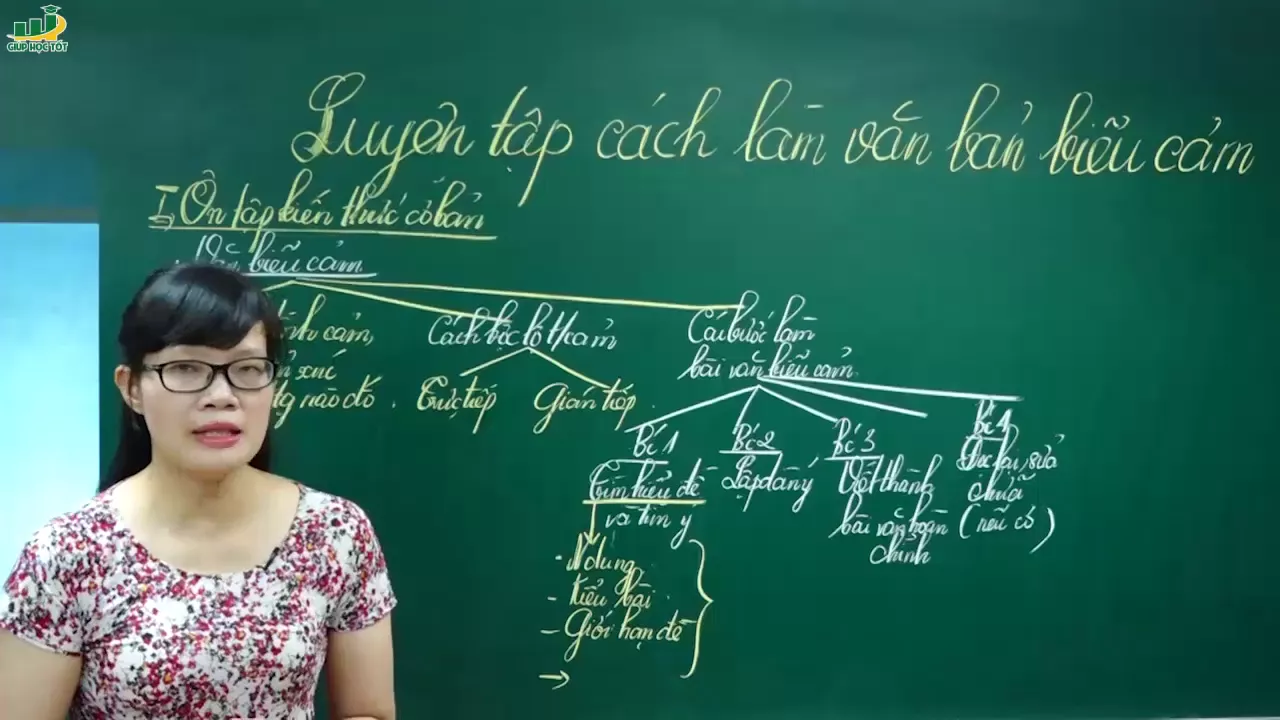 GIÚP HỌC TỐT
Luyện tập cách làm văn bản biểu cảm
I, Ôn tập kiến thức cơ bản
Văn biểu cảm
tình cảm,
xúc
nào đó.
Cách bộc lộ t/cảm
Trực tiếp
Gián tiếp.
Các bước làm
bài văn biểu cảm.
Bc 1
Tìm hiểu đề
và tìm ý
- N dung
- Kiểu bài
- Giới hạn đề
→
Bc 2
Lập dàn ý
Bc 3
Viết thành
bài văn hoàn
chỉnh
Bc 4
Đọc lại, sửa
chữa
(nếu có)